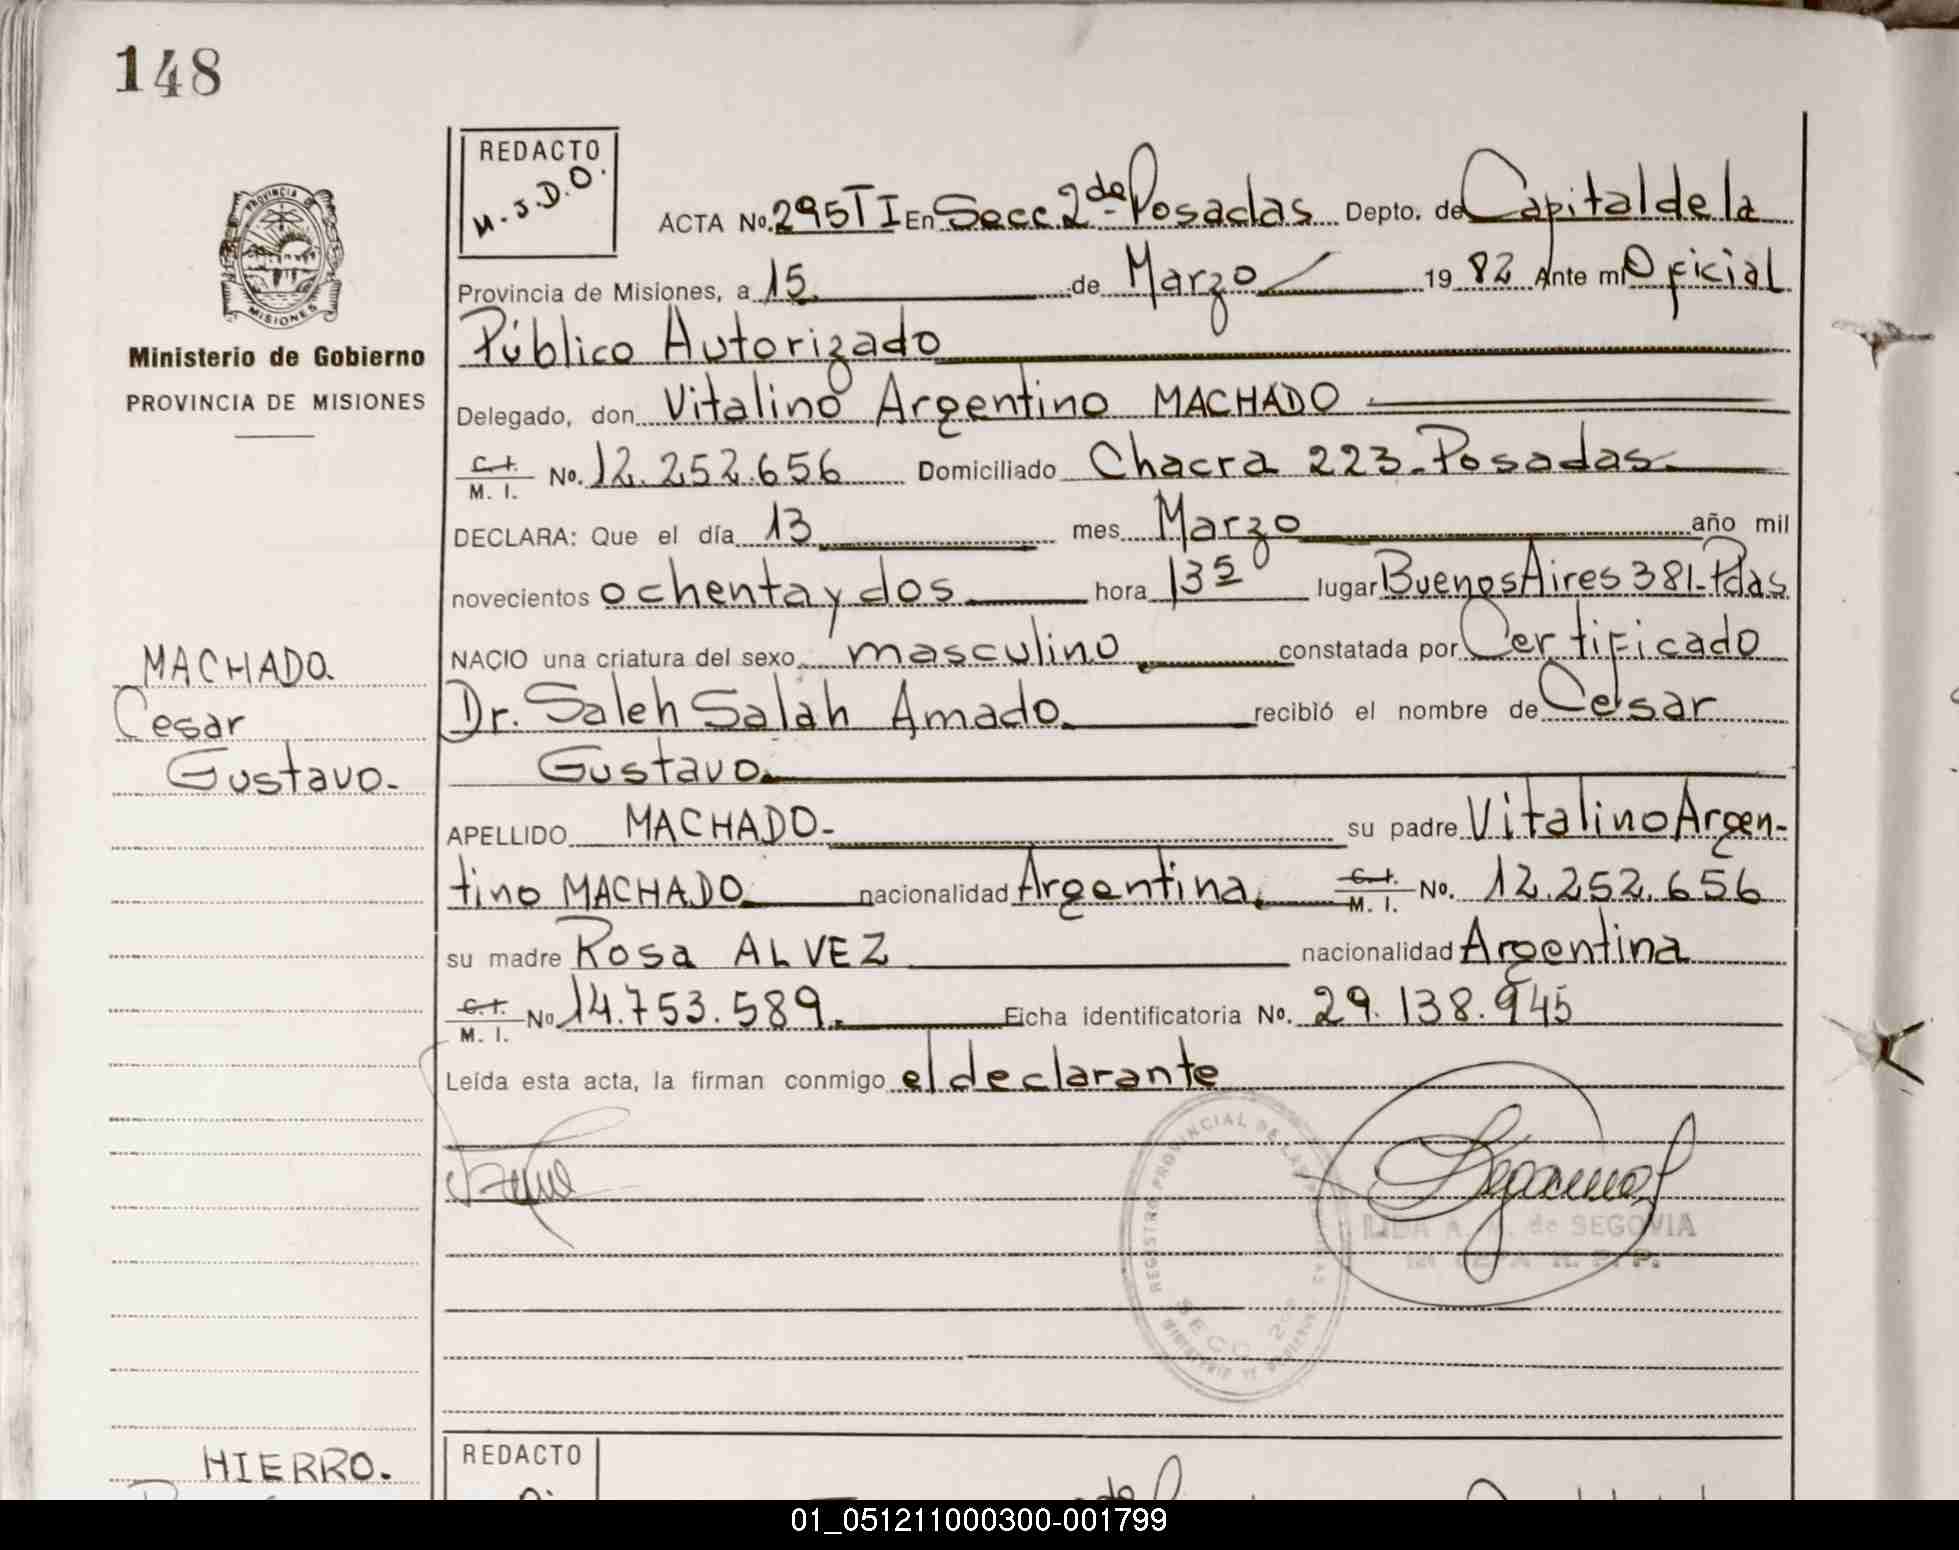 148
REDACTO
M.J.D.O.
PROVINCIA DE
MISIONES
Ministerio de Gobierno
PROVINCIA DE MISIONES
ACTA No. 295 TI En Secc. 2da Posadas Depto. de Capital de la
Provincia de Misiones, a 15 de Marzo 1982 Ante mi Oficial
Público Autorizado
Delegado, don Vitalino Argentino MACHADO
C.I. M. I. No. 12.252.656 Domiciliado Chacra 223 - Posadas
DECLARA: Que el día 13 mes Marzo año mil
novecientos ochenta y dos hora 13 5 lugar Buenos Aires 381 - Pdas
NACIO una criatura del sexo masculino constatada por Certificado
Dr. Saleh Salah Amado recibió el nombre de César
Gustavo
APELLIDO MACHADO - su padre Vitalino Argen-
tino MACHADO nacionalidad Argentina C.I. M. I. No. 12.252.656
su madre Rosa ALVEZ nacionalidad Argentina
C.I. M. I. No 14.753.589. Ficha identificatoria No. 29.138.945
Leída esta acta, la firman conmigo el declarante
MACHADO.
Cesar
Gustavo -
REGISTRO PROVINCIAL DE LAS
SECC. 2da
LIDA A. de SEGOVIA
HIERRO.
REDACTO
01_051211000300-001799